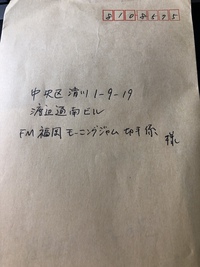 8108575
中央区清川1-9-19
渡辺通南ビル
FM福岡モーニングジャム 切手係 様